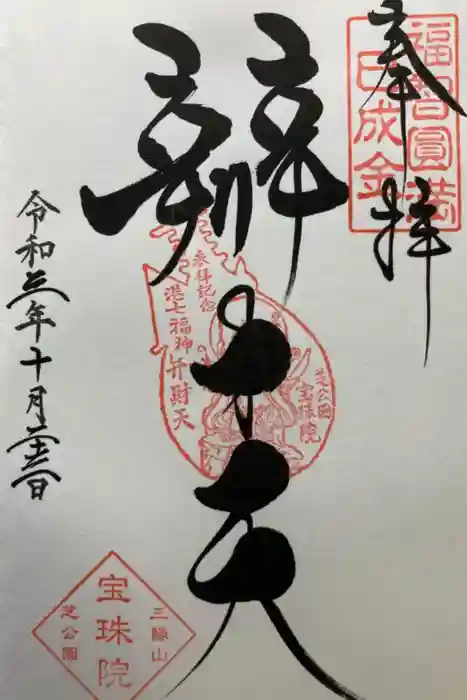 奉拝
福智圓満
巳成金
辨才天
参拝記念
港七福神
弁財天
芝公園
宝珠院
令和三年十月二十三日
三縁山
宝珠院
芝公園